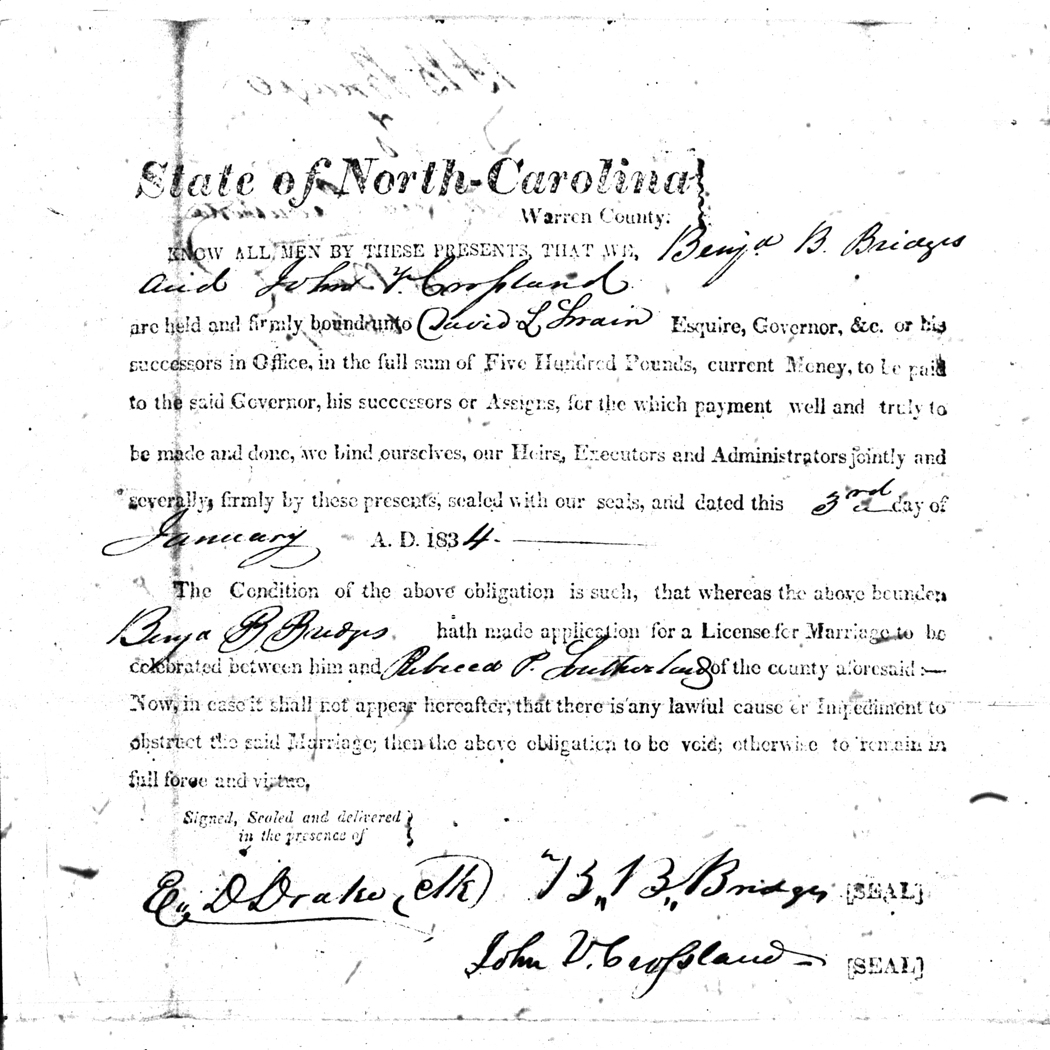 State of North-Carolina
Warren County.
KNOW ALL MEN BY THESE PRESENTS, THAT WE, Benja B. Bridges
and John V. Crossland
are held and firmly bound unto David L Swain Esquire, Governor, &c. or his
successors in Office, in the full sum of Five Hundred Pounds, current Money, to be paid
to the said Governor, his successors or Assigns, for the which payment well and truly to
be made and done, we bind ourselves, our Heirs, Executors and Administrators jointly and
severally, firmly by these presents, sealed with our seals, and dated this 3rd day of
January A. D. 1834.
The Condition of the above obligation is such, that whereas the above bounden
Benja B Bridges hath made application for a License for Marriage to be
celebrated between him and Rebecca P. Southerland of the county aforesaid:—
Now, in case it shall not appear hereafter, that there is any lawful cause or Impediment to
obstruct the said Marriage; then the above obligation to be void; otherwise to remain in
full force and virtue.
Signed, Sealed and delivered
in the presence of
E,, D Drake, Clk B,, B,, Bridges [SEAL]
John V. Crossland [SEAL]